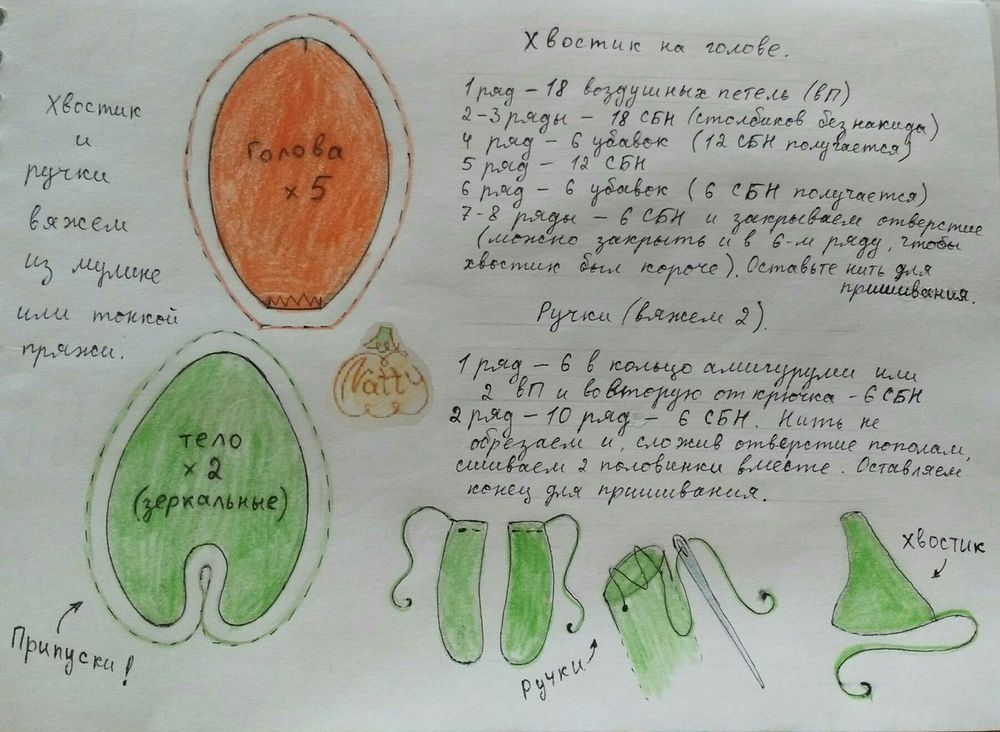 Хвостик на голове.
1 ряд – 18 воздушных петель (вП)
2-3 ряды – 18 СБН (столбиков без накида)
4 ряд – 6 убавок (12 СБН получается)
5 ряд – 12 СБН
6 ряд – 6 убавок (6 СБН получается)
7-8 ряды – 6 СБН и закрываем отверстие
(можно закрыть и в 6-м ряду, чтобы
хвостик был короче). Оставьте нить для
пришивания.
Ручки (вяжем 2).
1 ряд – 6 в кольцо амигуруми или
2 вП и во вторую от крючка – 6 СБН
2 ряд – 10 ряд – 6 СБН. Нить не
обрезаем и, сложив отверстие пополам,
сшиваем 2 половинки вместе. Оставляем
конец для пришивания.
Хвостик
и
ручки
вяжем
из мулине
или тонкой
пряжи.
Голова
х 5
Natty
тело
х 2
(зеркальные)
Припуски!
Ручки
хвостик